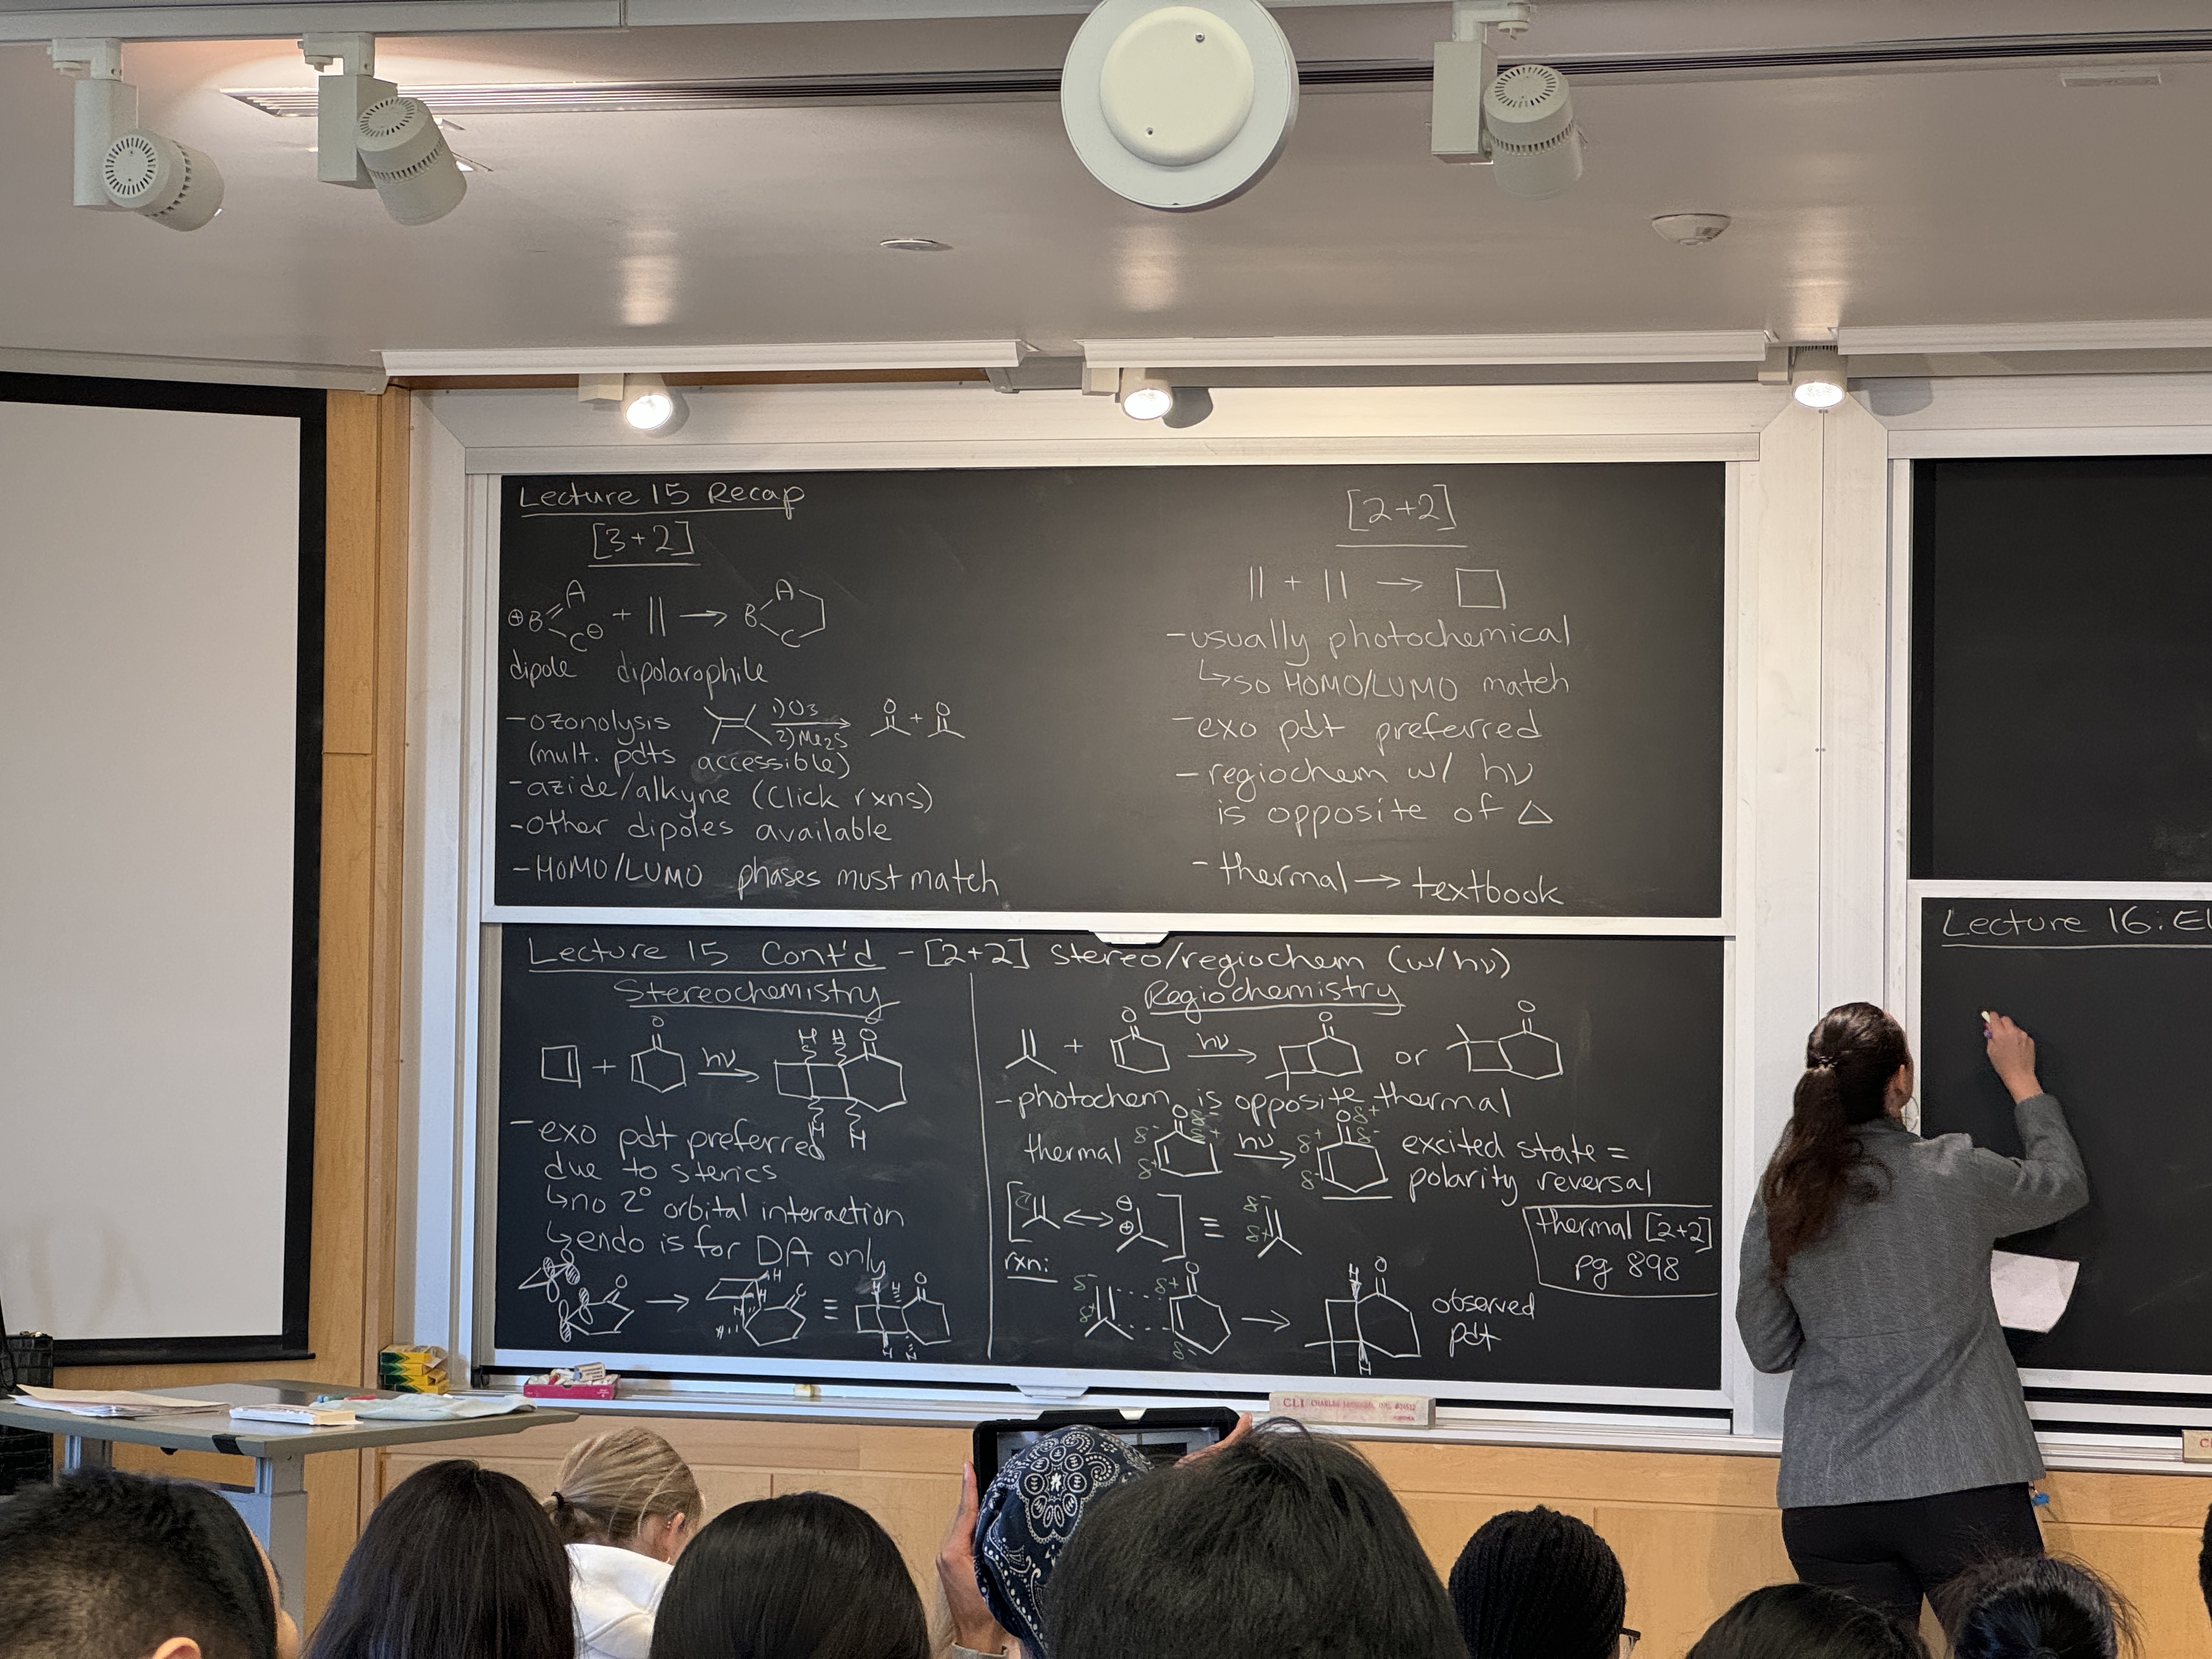 Lecture 15 Recap
[3+2]
⊕B A C⊖ + || → B A C
dipole dipolarophile
-ozonolysis 1) O3 2) Me2S O + O
(mult. pdts accessible)
-azide/alkyne (Click rxns)
-other dipoles available
-HOMO/LUMO phases must match
[2+2]
|| + || → □
-usually photochemical
↳so HOMO/LUMO match
-exo pdt preferred
-regiochem w/ hν
is opposite of △
-thermal → textbook
Lecture 15 Cont'd - [2+2] Stereo/regiochem (w/hν)
Stereochemistry
+ O hν → H H O H H
-exo pdt preferred
due to sterics
↳no 2° orbital interaction
↳endo is for DA only
O → H H H H ≡ H H O H H
Regiochemistry
+ O hν → O or O
-photochem is opposite thermal
thermal δ- δ+ O δ+ hν → δ+ δ- O δ+ δ- excited state =
polarity reversal
[ ↔ ⊖ ⊕ ] ≡ δ- δ+
thermal [2+2]
pg 898
rxn:
δ- δ+ δ+ O δ- → H O H observed
pdt
Lecture 16: El
CLI CHARLES LEONARD, INC.